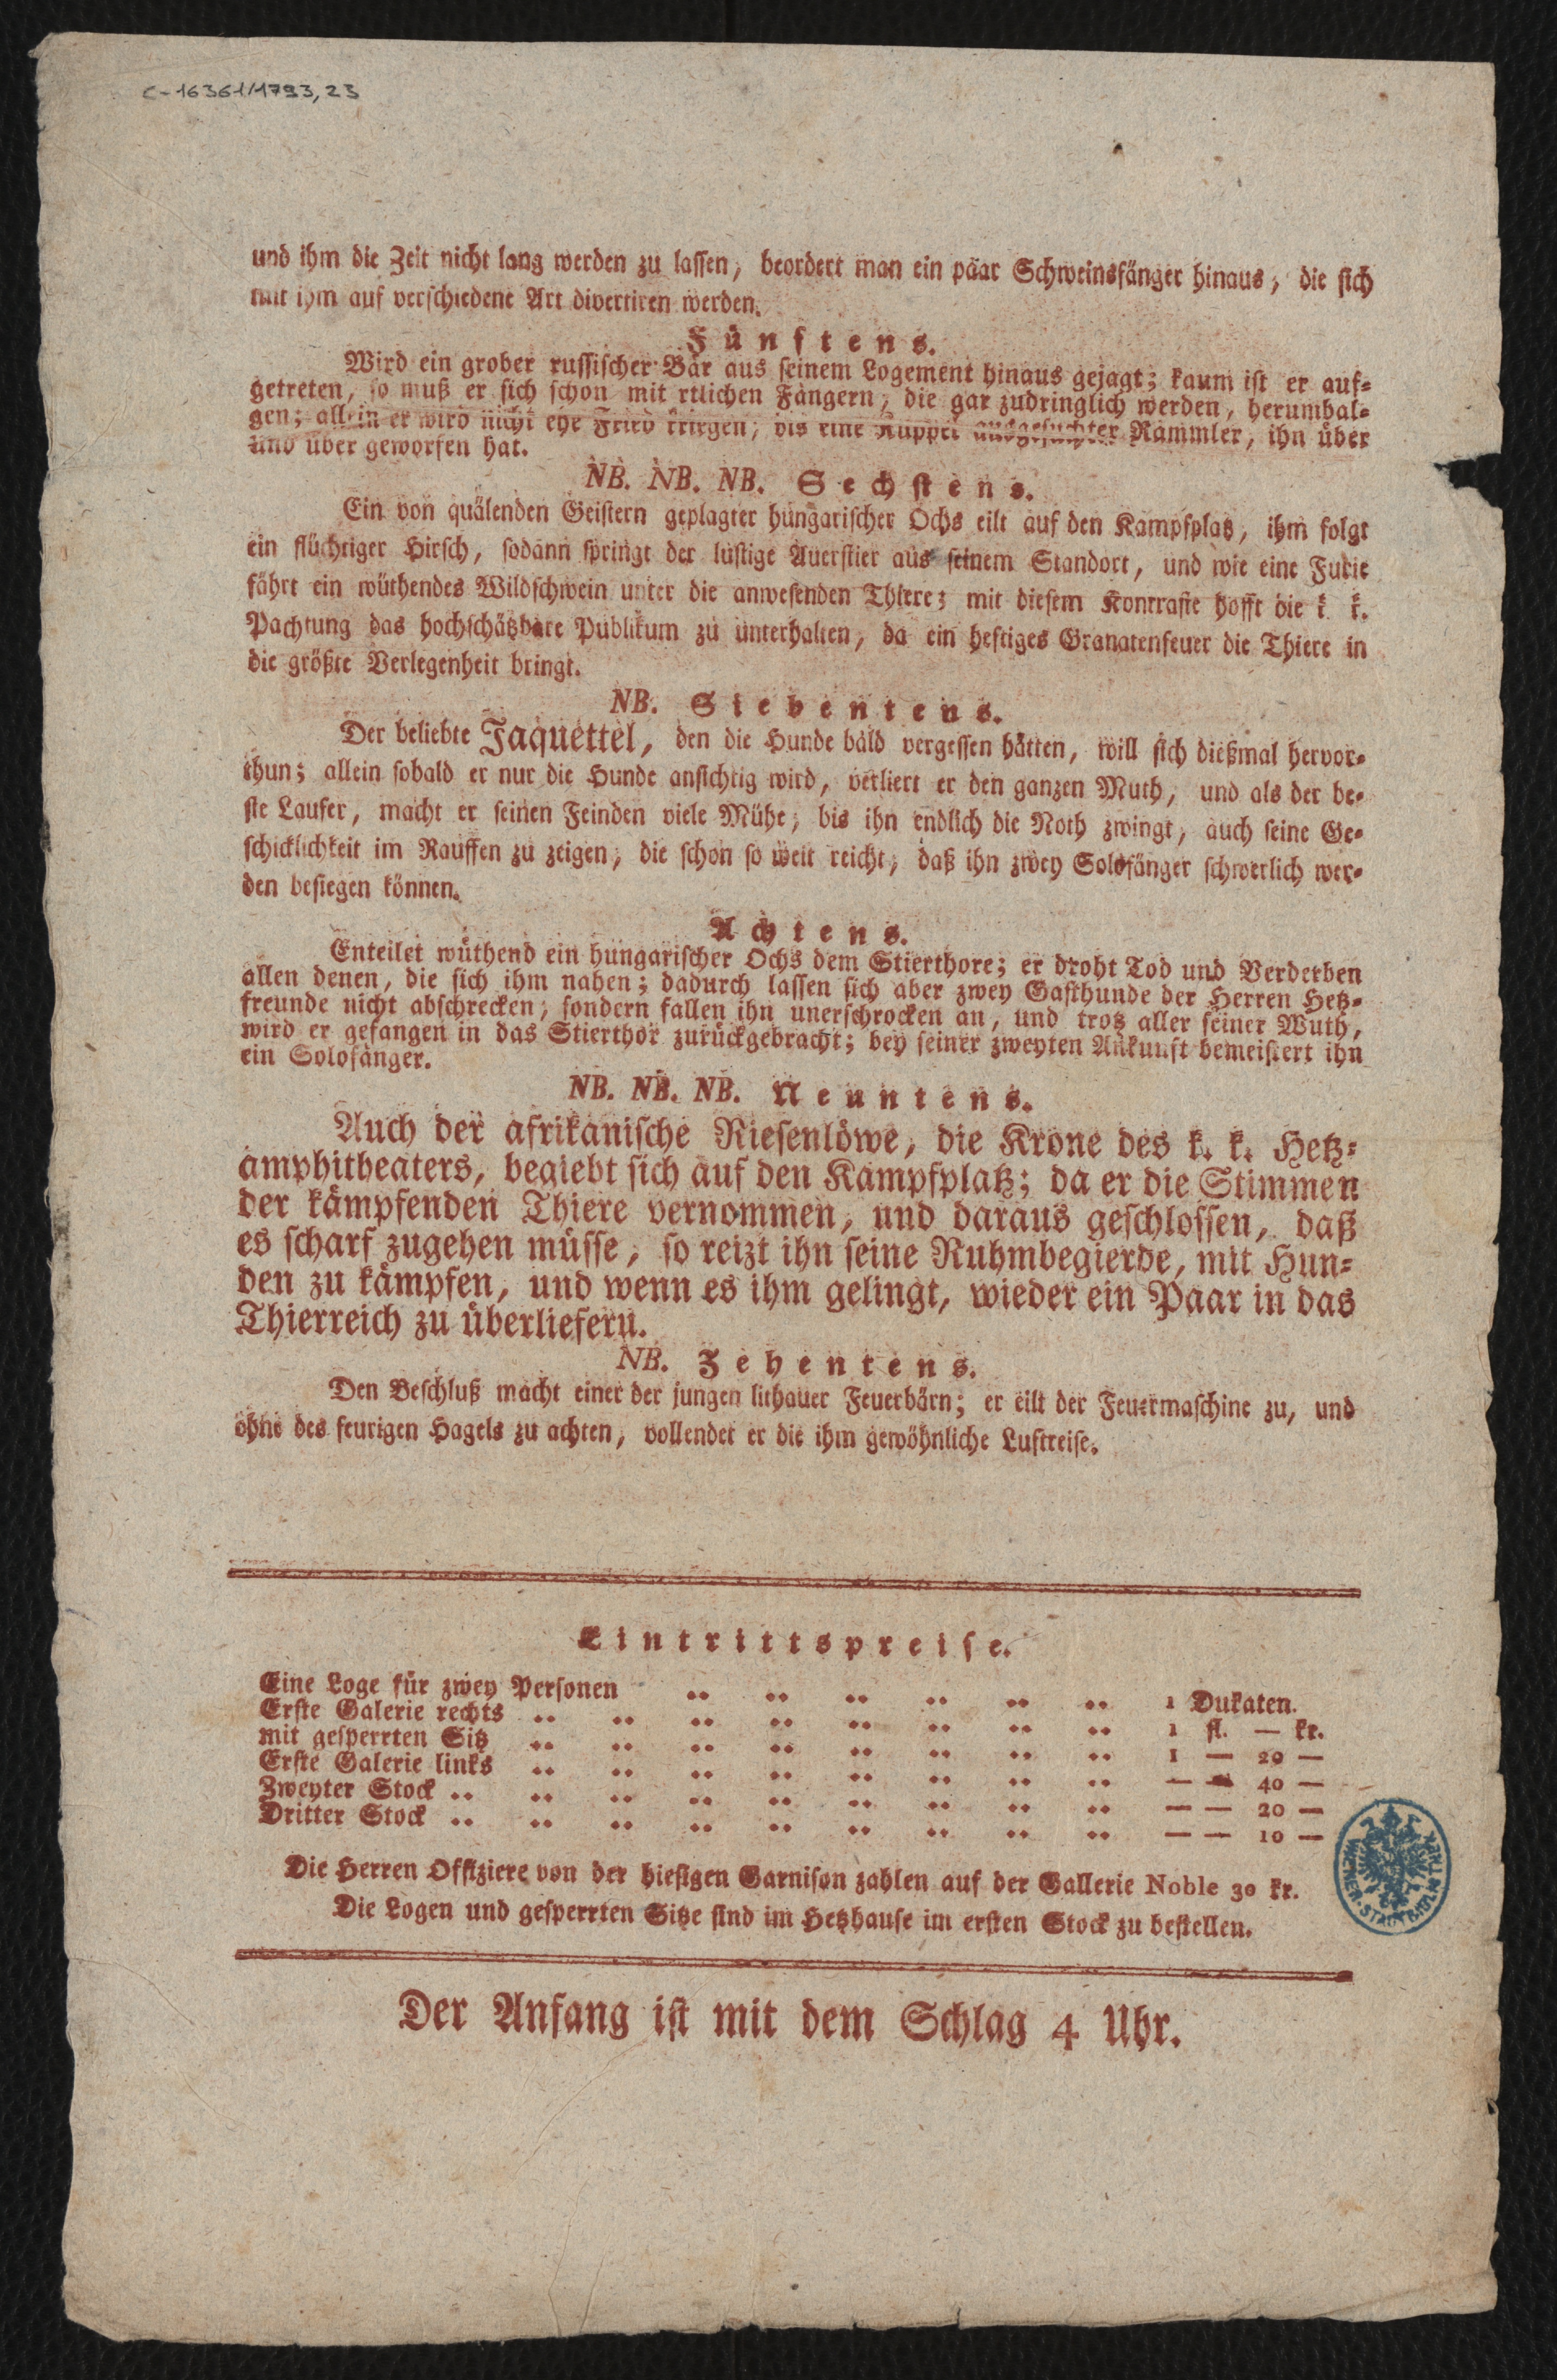 C-16361/1793,23
und ihm die Zeit nicht lang werden zu lassen, beordert man ein päar Schweinsfänger hinaus, die sich
mit ihm auf verschiedene Art divertiren werden.
Fünftens.
Wird ein grober russischer Bär aus seinem Logement hinaus gejagt; kaum ist er auf-
getreten, so muß er sich schon mit etlichen Fängern, die gar zudringlich werden, herumbal-
gen; allein er wird nicht ehe Fried kriegen, bis eine Kuppel ausgesuchter Rammler, ihn über
und über geworfen hat.
NB. NB. NB. Sechstens.
Ein von quälenden Geistern geplagter hungarischer Ochs eilt auf den Kampfplatz, ihm folgt
ein flüchtiger Hirsch, sodann springt der lustige Auerstier aus seinem Standort, und wie eine Furie
fährt ein wüthendes Wildschwein unter die anwesenden Thiere; mit diesem Kontraste hofft die k. k.
Pachtung das hochschätzbare Publikum zu unterhalten, da ein heftiges Granatenfeuer die Thiere in
die größte Verlegenheit bringt.
NB. Siebentens.
Der beliebte Jaquettel, den die Hunde bald vergessen hätten, will sich dießmal hervor-
thun; allein sobald er nur die Hunde ansichtig wird, verliert er den ganzen Muth, und als der be-
ste Laufer, macht er seinen Feinden viele Mühe, bis ihn endlich die Noth zwingt, auch seine Ge-
schicklichkeit im Rauffen zu zeigen, die schon so weit reicht, daß ihn zwey Solofänger schwerlich wer-
den besiegen können.
Achtens.
Enteilet wüthend ein hungarischer Ochs dem Stierthore; er droht Tod und Verderben
allen denen, die sich ihm nahen; dadurch lassen sich aber zwey Gasthunde der Herren Hetz-
freunde nicht abschrecken, sondern fallen ihn unerschrocken an, und trotz aller seiner Wuth,
wird er gefangen in das Stierthor zurückgebracht; bey seiner zweyten Ankunft bemeistert ihn
ein Solofänger.
NB. NB. NB. Neuntens.
Auch der afrikanische Riesenlöwe, die Krone des k. k. Hetz-
amphitheaters, begiebt sich auf den Kampfplatz; da er die Stimmen
der kämpfenden Thiere vernommen, und daraus geschlossen, daß
es scharf zugehen müsse, so reizt ihn seine Ruhmbegierde, mit Hun-
den zu kämpfen, und wenn es ihm gelingt, wieder ein Paar in das
Thierreich zu überliefern.
NB. Zehentens.
Den Beschluß macht einer der jungen lithauer Feuerbärn; er eilt der Feuermaschine zu, und
ohne des feurigen Hagels zu achten, vollendet er die ihm gewöhnliche Luftreise.
Eintrittspreise.
Eine Loge für zwey Personen .. .. .. .. .. .. 1 Dukaten.
Erste Galerie rechts .. .. .. .. .. .. .. .. 1 fl. — kr.
mit gesperrten Sitz .. .. .. .. .. .. .. .. 1 — 20 —
Erste Galerie links .. .. .. .. .. .. .. .. — — 40 —
Zweyter Stock .. .. .. .. .. .. .. .. .. — — 20 —
Dritter Stock .. .. .. .. .. .. .. .. .. — — 10 —
Die Herren Offiziere von der hiesigen Garnison zahlen auf der Gallerie Noble 30 kr.
Die Logen und gesperrten Sitze sind im Hetzhause im ersten Stock zu bestellen.
Der Anfang ist mit dem Schlag 4 Uhr.